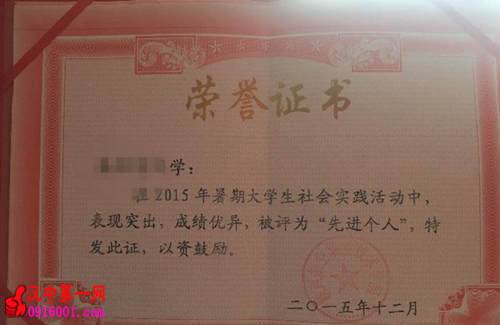 荣誉证书
学：
2015年暑期大学生社会实践活动中，
表现突出，成绩优异，被评为“先进个人”，特
发此证，以资鼓励。
二〇一五年十二月
汉中第一网
0916001.com